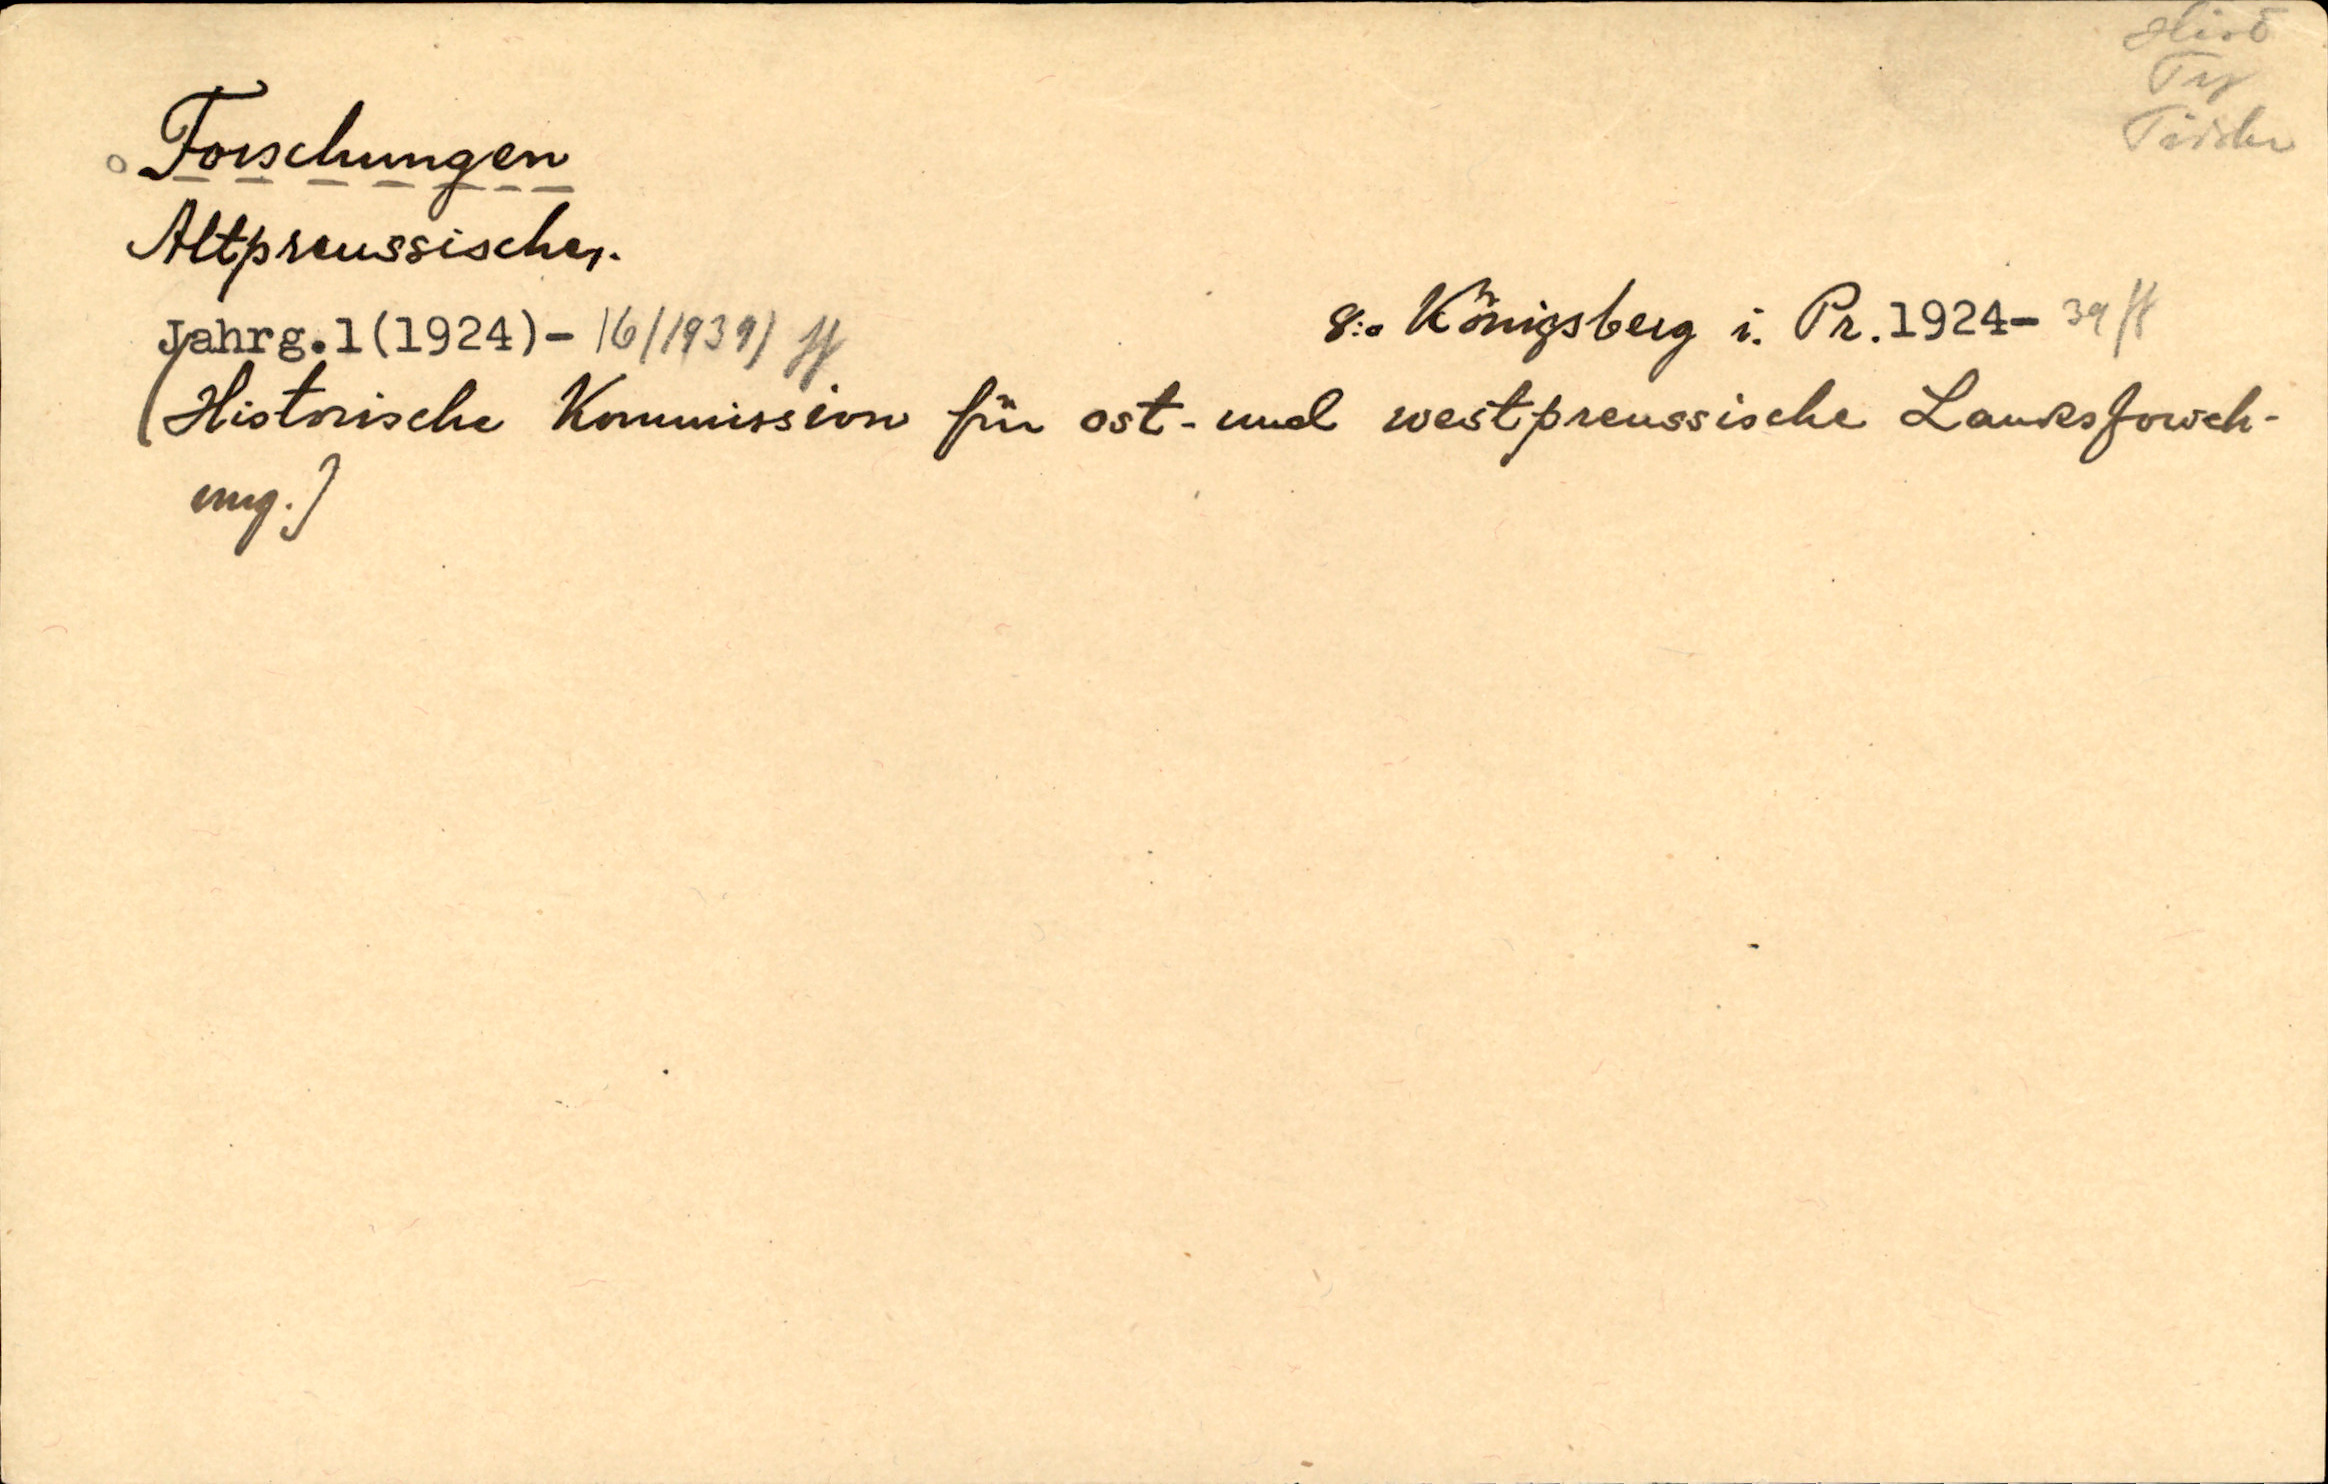 Hist
Ty
Tidskr
Forschungen
Altpreussische,.
Jahrg.1(1924)- 16(1939) ff
8:o Königsberg i. Pr.1924- 39 ff
(Historische Kommission für ost- und westpreussische Landesforsch-
ung.)